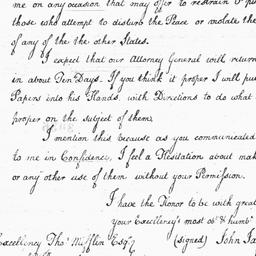 me on any occasion that may offer to restrain & pu
those who attempt to disturb the Peace or violate the
of any of the the other States.
I expect that our Attorney General will return
in about Ten Days. If you think it proper I will put
Papers into his Hands, with Directions to do what
proper on the subject of them.
I mention this because as you communicated
to me in Confidence, I feel a Hesitation about mak
or any other use of them without your Permission.
I have the Honor to be with great
your Excellency's most ob.t & humb.
Excellency Tho.s Mifflin Esq.r
(signed) John Ja